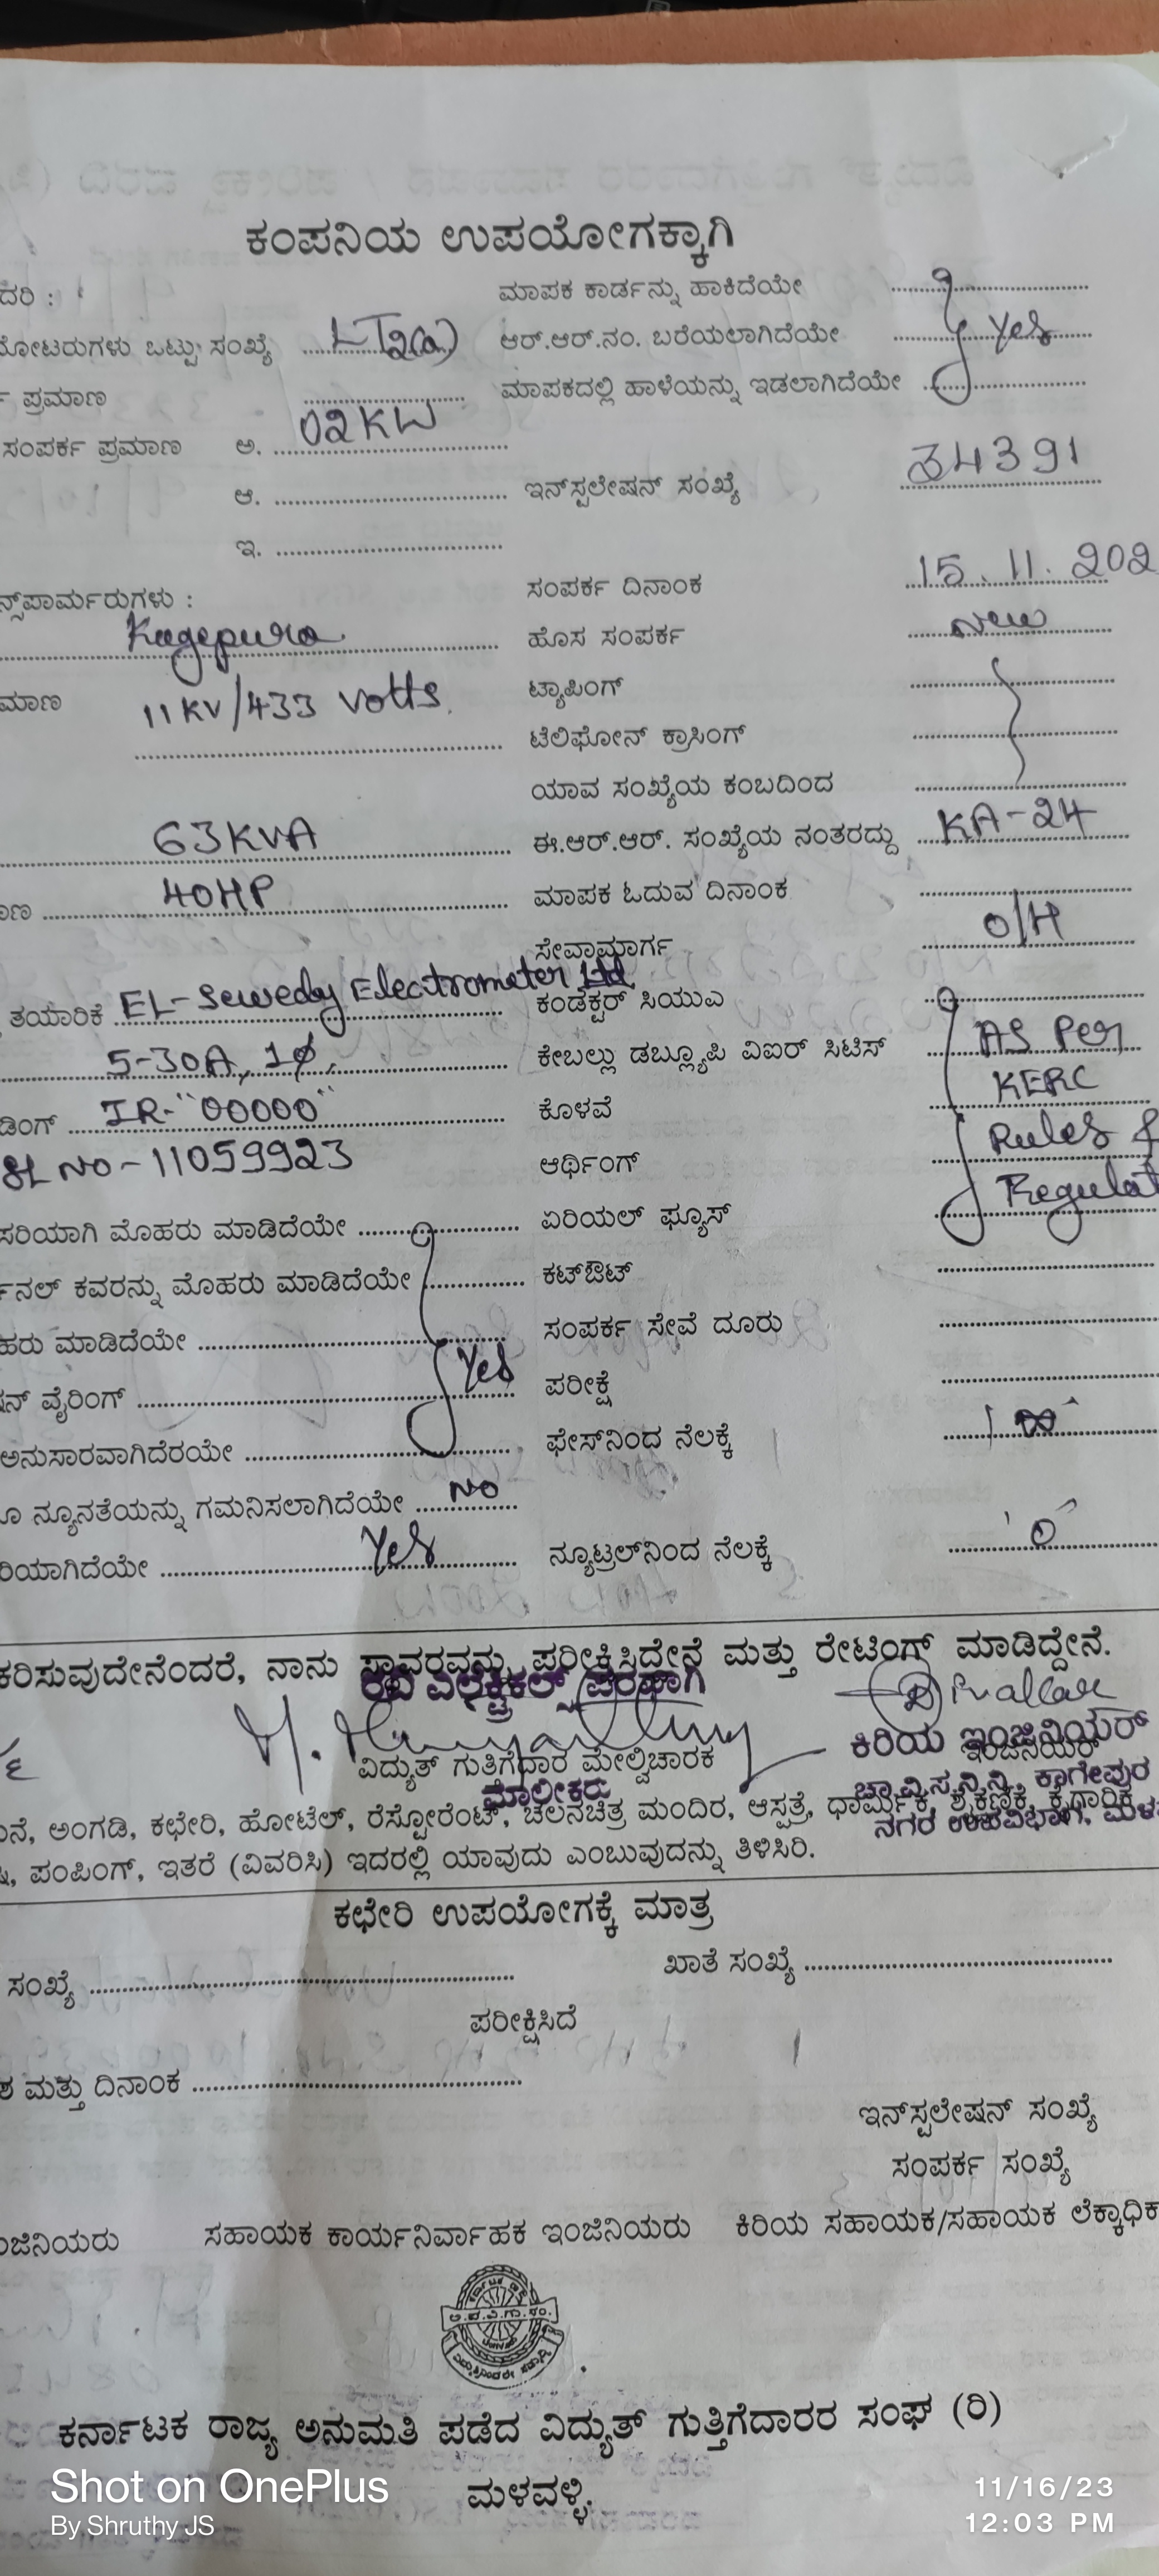 ಕಂಪನಿಯ ಉಪಯೋಗಕ್ಕಾಗಿ
ದರಿ : ಮಾಪಕ ಕಾರ್ಡನ್ನು ಹಾಕಿದೆಯೇ
ಮೋಟರುಗಳು ಒಟ್ಟು ಸಂಖ್ಯೆ LT2(a) ಆರ್.ಆರ್.ನಂ. ಬರೆಯಲಾಗಿದೆಯೇ Yes
ಪ್ರಮಾಣ ಮಾಪಕದಲ್ಲಿ ಹಾಳೆಯನ್ನು ಇಡಲಾಗಿದೆಯೇ
ಸಂಪರ್ಕ ಪ್ರಮಾಣ ಅ. 02KW
ಆ. ಇನ್‌ಸ್ಟಲೇಷನ್ ಸಂಖ್ಯೆ 34391
ಇ.
ನ್ಸ್‌ಪಾರ್ಮರುಗಳು : ಸಂಪರ್ಕ ದಿನಾಂಕ 15.11.202
Kagepura ಹೊಸ ಸಂಪರ್ಕ New
ಮಾಣ 11KV/433 Volts. ಟ್ಯಾಪಿಂಗ್
ಟೆಲಿಫೋನ್ ಕ್ರಾಸಿಂಗ್
ಯಾವ ಸಂಖ್ಯೆಯ ಕಂಬದಿಂದ
63KVA ಈ.ಆರ್.ಆರ್. ಸಂಖ್ಯೆಯ ನಂತರದ್ದು KA-24
ಾಣ 40HP ಮಾಪಕ ಓದುವ ದಿನಾಂಕ
ಸೇವಾಮಾರ್ಗ O/H
ತಯಾರಿಕೆ EL-Sewedy Electrometer Ltd ಕಂಡೆಕ್ಟರ್ ಸಿಯುಎ
5-30A, 1ϕ, ಕೇಬಲ್ಲು ಡಬ್ಲ್ಯೂಪಿ ವಿಐರ್ ಸಿಟಿಸ್ AS Per
ಡಿಂಗ್ IR-"00000" ಕೊಳವೆ KERC
SL NO-11059923 ಆರ್ಥಿಂಗ್ Rules &
ಸರಿಯಾಗಿ ಮೊಹರು ಮಾಡಿದೆಯೇ ಏರಿಯಲ್ ಫ್ಯೂಸ್ Regulat
ನಲ್ ಕವರನ್ನು ಮೊಹರು ಮಾಡಿದೆಯೇ ಕಟ್‌ಔಟ್
ಹರು ಮಾಡಿದೆಯೇ ಸಂಪರ್ಕ ಸೇವೆ ದೂರು
ನ್ ವೈರಿಂಗ್ Yes ಪರೀಕ್ಷೆ
ಅನುಸಾರವಾಗಿದೆರಯೇ ಫೇಸ್‌ನಿಂದ ನೆಲಕ್ಕೆ
ೂ ನ್ಯೂನತೆಯನ್ನು ಗಮನಿಸಲಾಗಿದೆಯೇ NO
ರಿಯಾಗಿದೆಯೇ Yes ನ್ಯೂಟ್ರಲ್‌ನಿಂದ ನೆಲಕ್ಕೆ 'O'
ಕರಿಸುವುದೇನೆಂದರೆ, ನಾನು ಸ್ಥಾವರವನ್ನು ಪರೀಕ್ಷಿಸಿದ್ದೇನೆ ಮತ್ತು ರೇಟಿಂಗ್ ಮಾಡಿದ್ದೇನೆ.
ರವಿ ಎಲೆಕ್ಟ್ರಿಕಲ್ಸ್ ಪರವಾಗಿ
ಕಿರಿಯ ಇಂಜಿನಿಯರ್
ವಿದ್ಯುತ್ ಗುತಿಗೆದಾರ ಮೇಲ್ವಿಚಾರಕ ಇಂಜಿನಿಯರ್
ಮಾಲೀಕರು ಚಾ.ವಿ.ಸ.ನಿ.ನಿ. ಕಾಗೇಪುರ
ನೆ, ಅಂಗಡಿ, ಕಛೇರಿ, ಹೋಟೆಲ್, ರೆಸ್ಟೋರೆಂಟ್, ಚಲನಚಿತ್ರ ಮಂದಿರ, ಆಸ್ಪತ್ರೆ, ಧಾರ್ಮಿಕ, ಶೈಕ್ಷಣಿಕ, ಕೈಗಾರಿಕ
ನಗರ ಉಪವಿಭಾಗ, ಮಳ
, ಪಂಪಿಂಗ್, ಇತರೆ (ವಿವರಿಸಿ) ಇದರಲ್ಲಿ ಯಾವುದು ಎಂಬುವುದನ್ನು ತಿಳಿಸಿರಿ.
ಕಛೇರಿ ಉಪಯೋಗಕ್ಕೆ ಮಾತ್ರ
ಸಂಖ್ಯೆ ಖಾತೆ ಸಂಖ್ಯೆ
ಪರೀಕ್ಷಿಸಿದೆ
ಶ ಮತ್ತು ದಿನಾಂಕ
ಇನ್‌ಸ್ಟಲೇಷನ್ ಸಂಖ್ಯೆ
ಸಂಪರ್ಕ ಸಂಖ್ಯೆ
ಂಜಿನಿಯರು ಸಹಾಯಕ ಕಾರ್ಯನಿರ್ವಾಹಕ ಇಂಜಿನಿಯರು ಕಿರಿಯ ಸಹಾಯಕ/ಸಹಾಯಕ ಲೆಕ್ಕಾಧಿಕ
ಕರ್ನಾಟಕ ರಾಜ್ಯ ಅನುಮತಿ ಪಡೆದ ವಿದ್ಯುತ್ ಗುತ್ತಿಗೆದಾರರ ಸಂಘ (ರಿ)
ಮಳವಳ್ಳಿ.
Shot on OnePlus
By Shruthy JS
11/16/23
12:03 PM